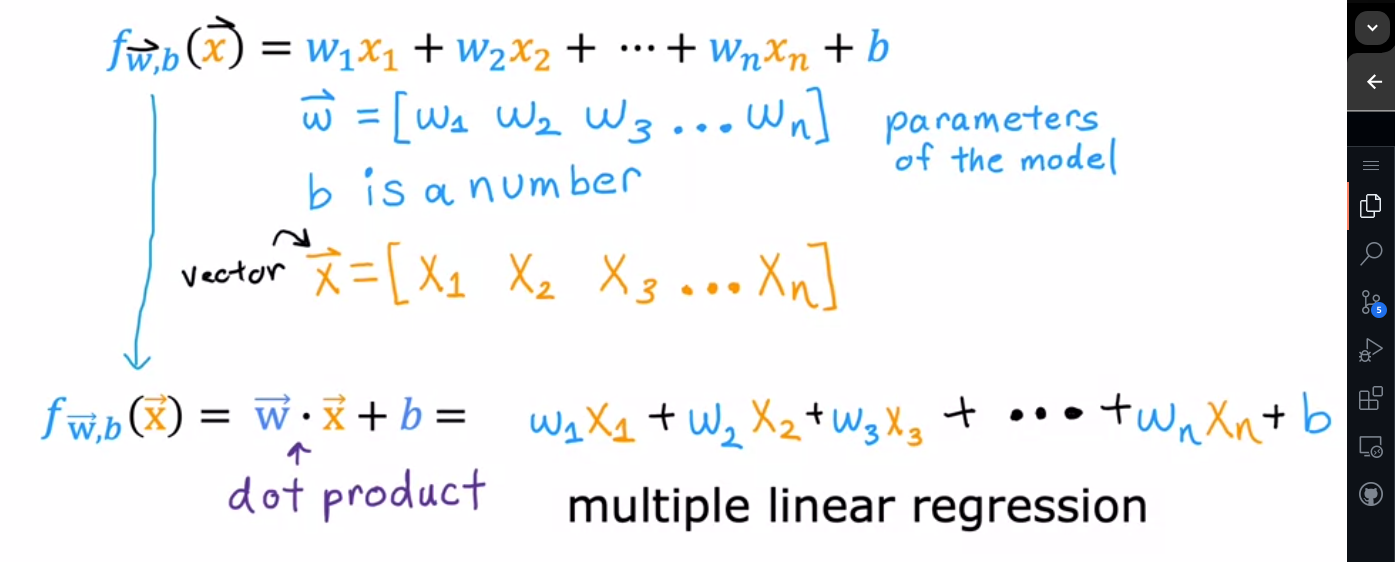 f w⃗,b (x⃗) = w₁x₁ + w₂x₂ + ⋯ + wₙxₙ + b
w⃗ = [w₁ w₂ w₃ ... wₙ] parameters
of the model
b is a number
vector x⃗ = [x₁ x₂ x₃ ... xₙ]
f w⃗,b (x⃗) = w⃗ · x⃗ + b = w₁x₁ + w₂x₂ + w₃x₃ + ... + wₙxₙ + b
dot product
multiple linear regression
5